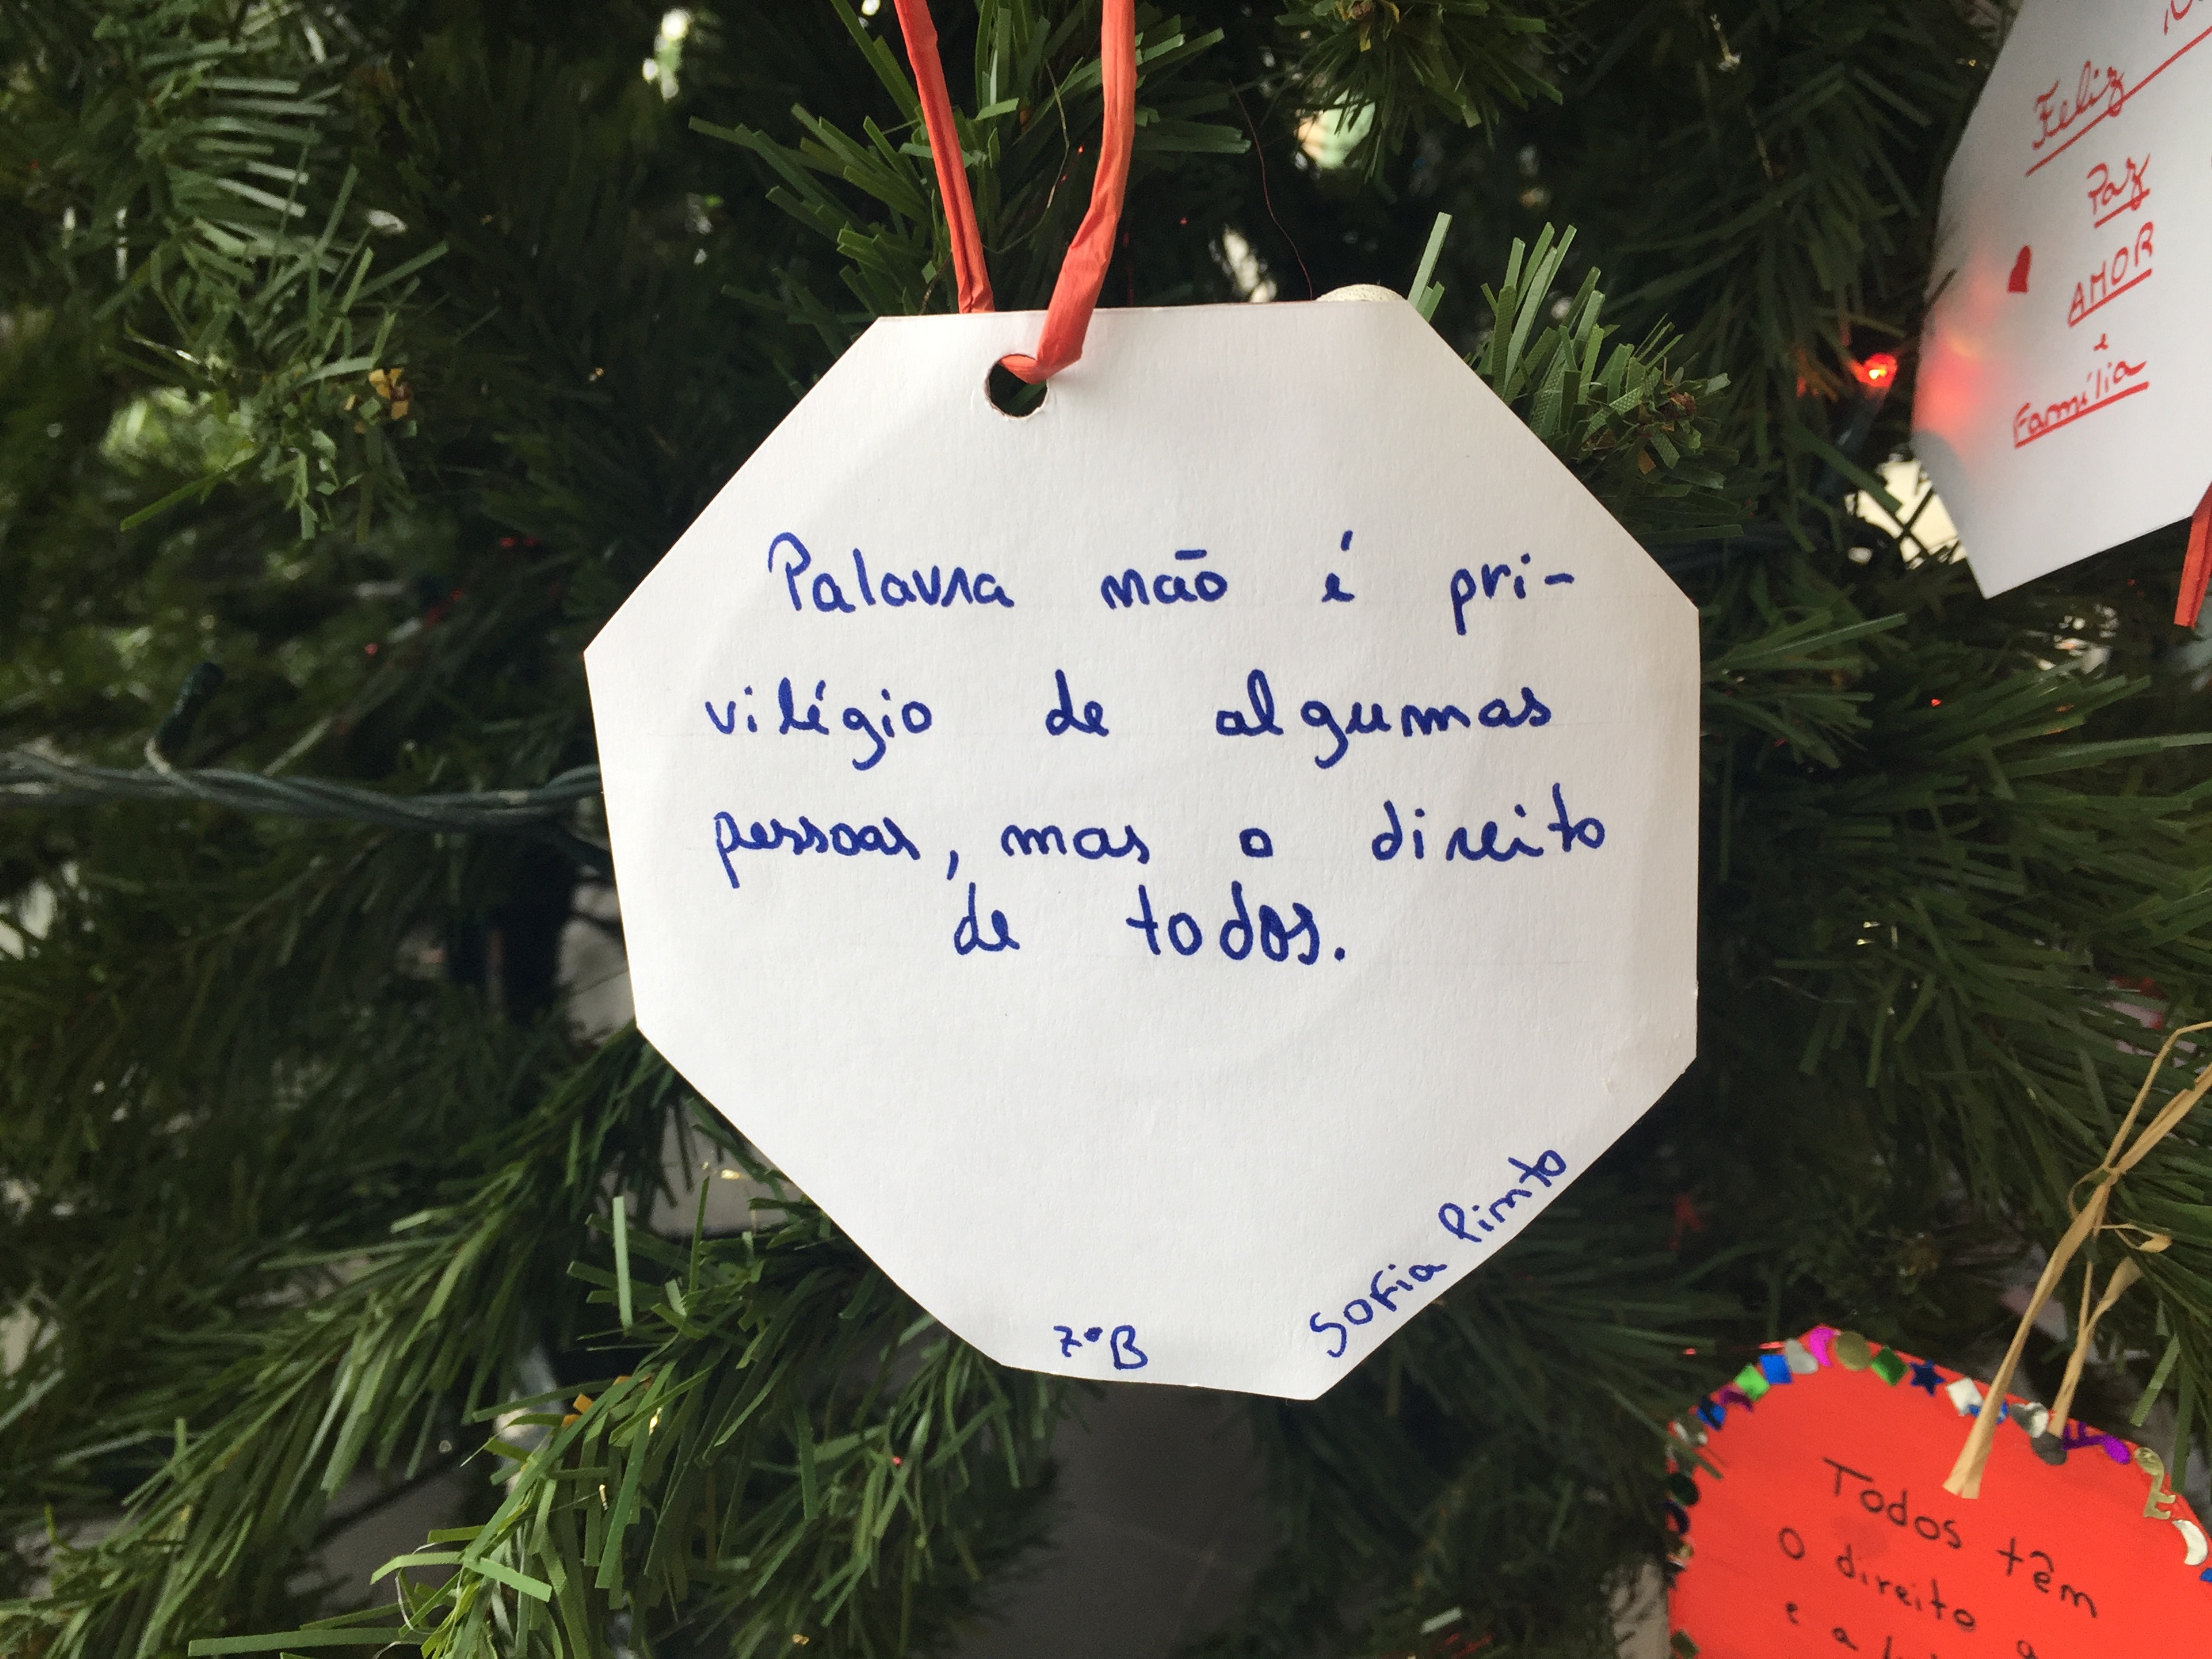 Palavra não é pri-
vilégio de algumas
pessoas, mas o direito
de todos.
7ºB
Sofia Pinto
Feliz
Paz
AMOR
e
Família
Todos têm
O direito
e a